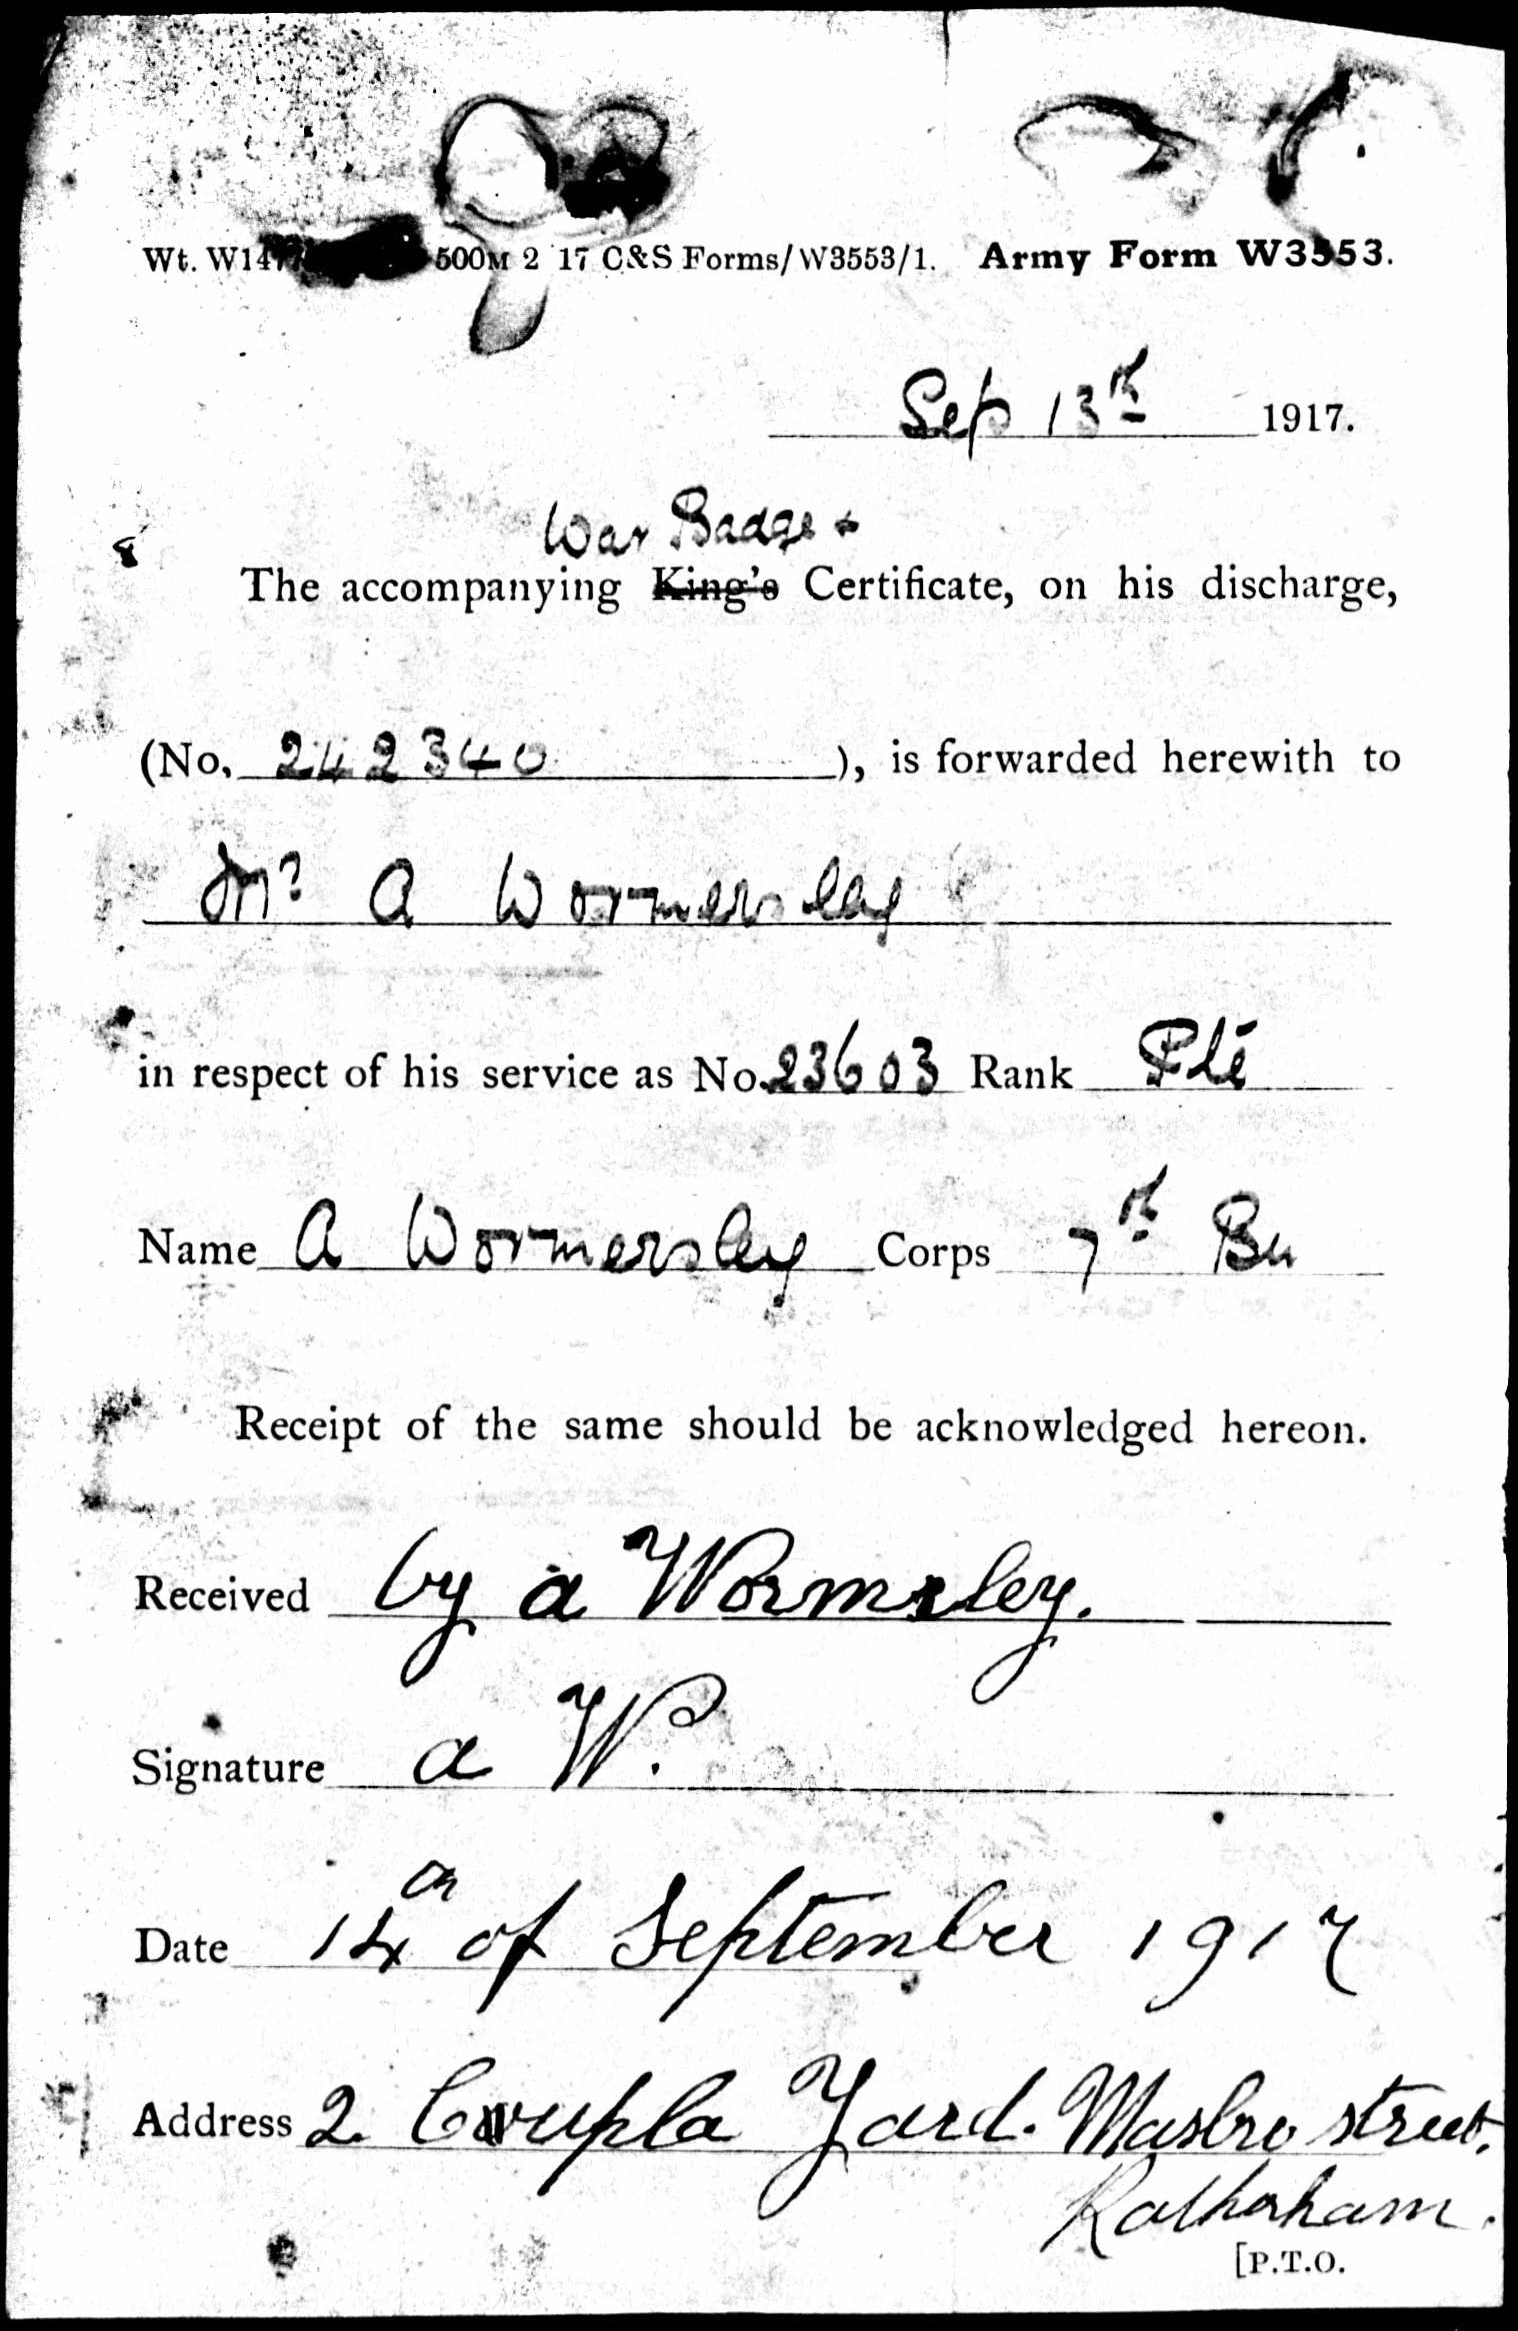 500M 2 17 C&S Forms/W3553/1. Army Form W3553.
Sep 13th 1917.
War Badge +
The accompanying King's Certificate, on his discharge,
(No. 242340 ), is forwarded herewith to
Mr A Wormersley
in respect of his service as No. 23603 Rank Pte
Name A Wormersley Corps 7th Bn
Receipt of the same should be acknowledged hereon.
Received by a Wormsley.
Signature a W.
Date 14th of September 1917
Address 2 Yard. Masbro street.
Rotherham.
[P.T.O.